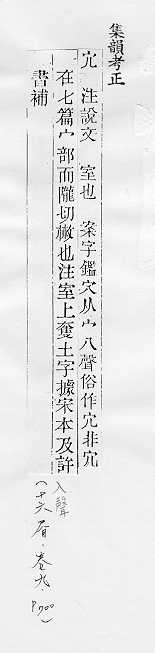 集韻考正
宂 注說文 室也 案字鑑穴从宀八聲俗作宂非宂
在七篇宀部而隴切㪔也注室上奪土字據宋本及許
書補
入聲
(十六屑．卷九．P700)